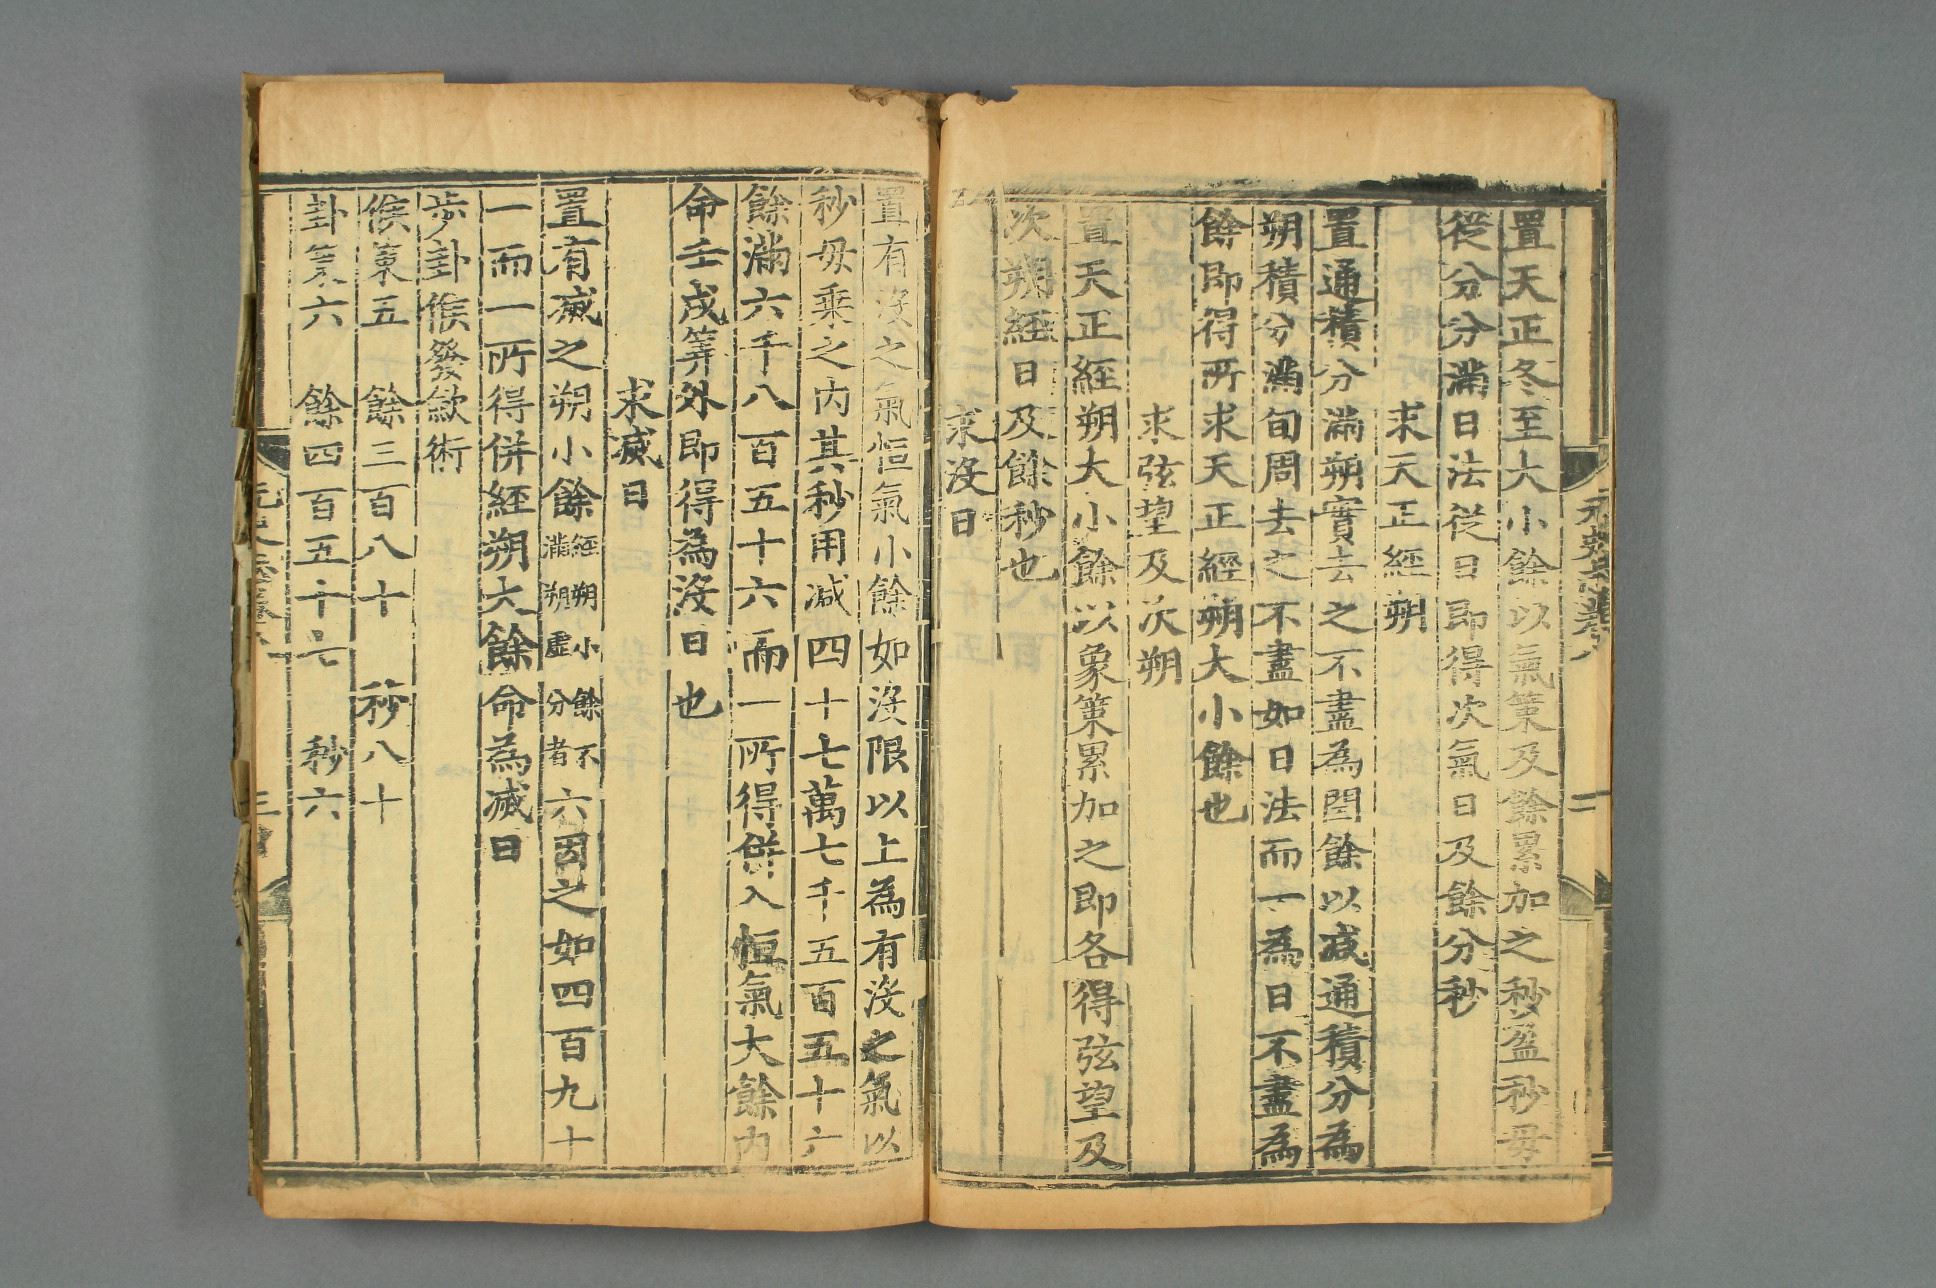 置天正冬至大小餘以氣策及餘累加之秒盈秒毋
從分分滿日法從日即得次氣日及餘分秒
求天正經朔
置通積分滿朔實去之不盡為閏餘以减通積分為
朔積分滿旬周去之不盡如日法而一為日不盡為
餘即得所求天正經朔大小餘也
求弦望及次朔
置天正經朔大小餘以象策累加之即各得弦望及
次朔經日及餘秒也
求沒日
置有沒之氣恒氣小餘如沒限以上為有沒之氣以
秒毋乘之内其秒用减四十七萬七千五百五十六
餘滿六千八百五十六而一所得併入恒氣大餘内
命壬戌筭外即得為沒日也
求滅日
置有滅之朔小餘經朔小餘不滿朔虛分者六因之如四百九十
一而一所得併經朔大餘命為滅日
步卦候發斂術
候策五 餘三百八十 秒八十
卦策六 餘四百五十七 秒六
三